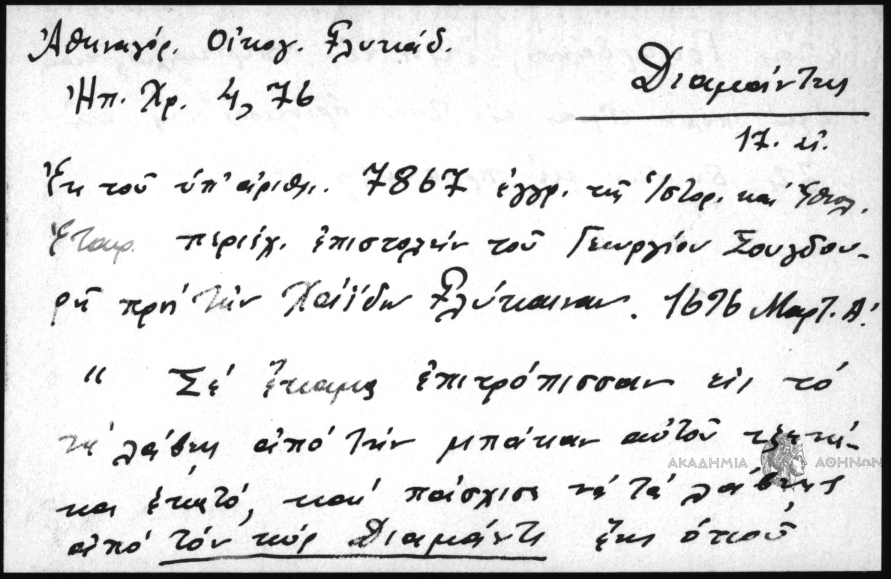 Ἀθηναγόρ. Οἰκογ. Γλυκάδ.
Ἠπ. Χρ. 4, 76
Διαμάντης
17. αἰ.
Ἐκ τοῦ ὑπ' ἀριθμ. 7867 ἐγγρ. τῆς Ἱστορ. καὶ Ἐθνολ.
Ἑταιρ. περιέχ. ἐπιστολὴν τοῦ Γεωργίου Σουγδου-
ρῆ πρὸς τὴν Χάϊδω Γλύκαιναν. 1696 Μαρτ. Α΄
“ Σὲ ἔκαμε ἐπιτρόπισσαν εἰς τὸ
νὰ λάβῃς ἀπὸ τὴν μπάκαν αὐτοῦ
καὶ ἑκατό, καὶ πάσχισε νὰ τὰ λάβῃς
ἀπὸ τὸν κὺρ Διαμάντι ἕως ὁποῦ
ΑΚΑΔΗΜΙΑ ΑΘΗΝΩΝ